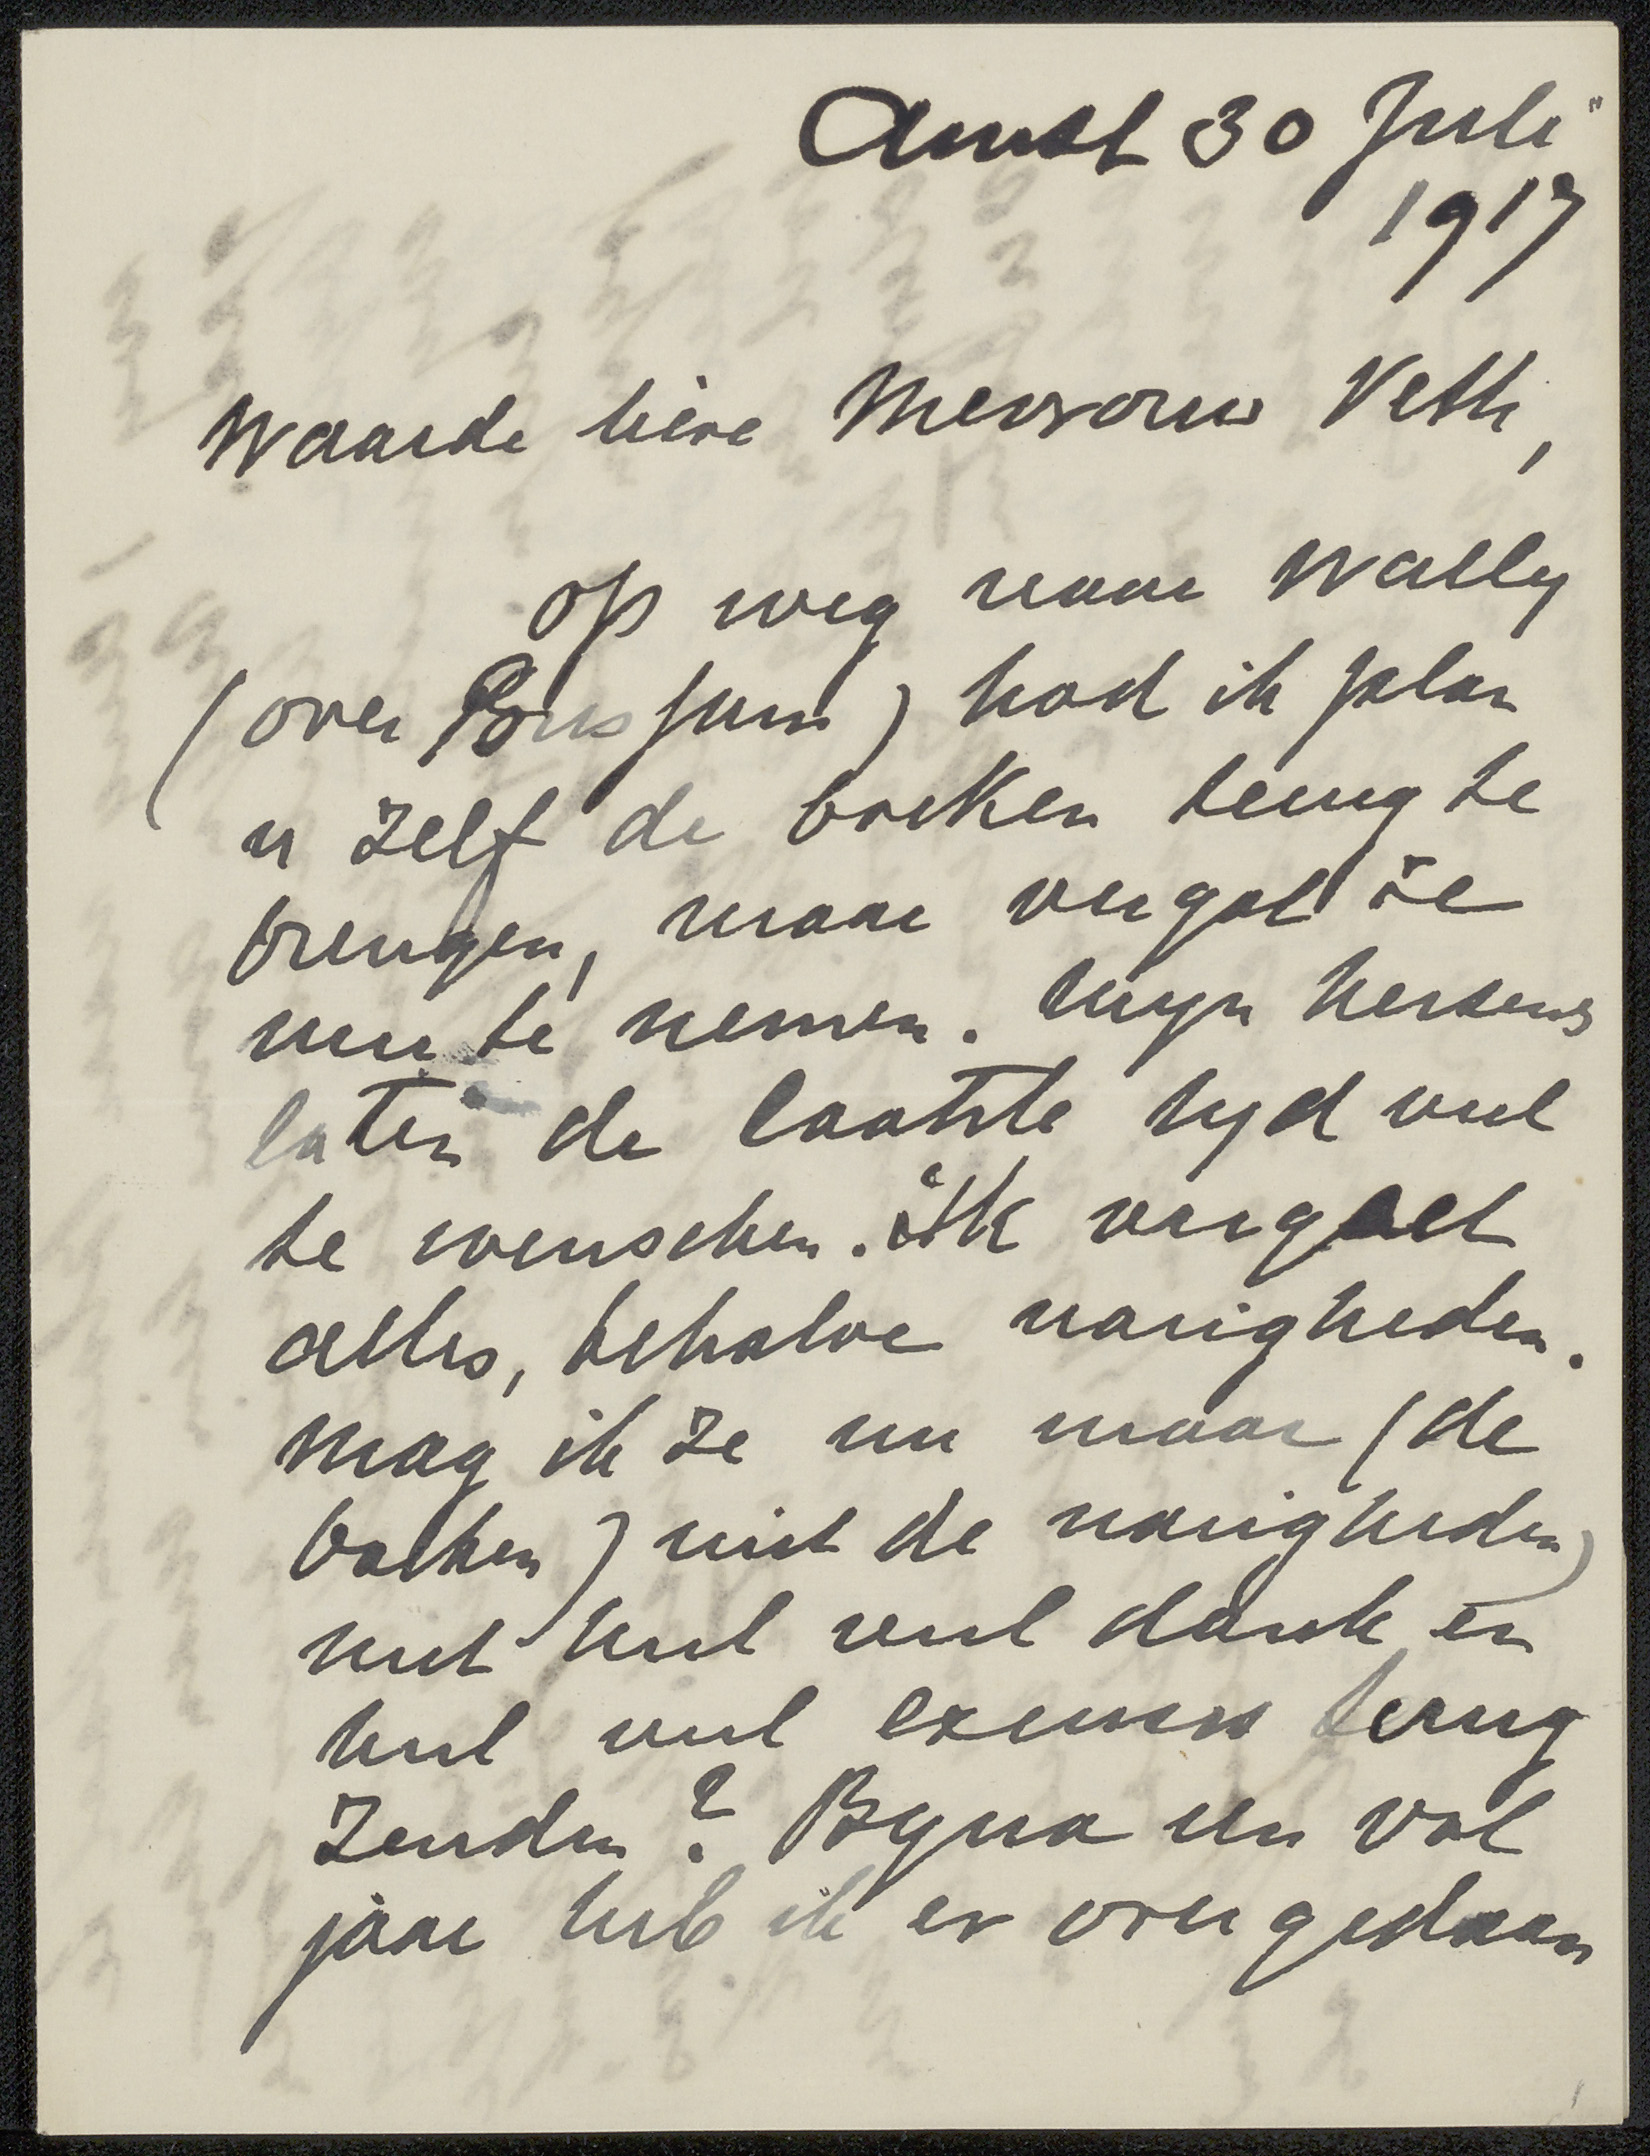 Amst 30 Juli
1917
Waarde lieve Mevrouw Veth,
op weg naar Wally
(over Bussum) had ik plan
u zelf de boeken terug te
brengen, maar vergat ze
mee te nemen. Mijn hersens
laten de laatste tijd veel
te wenschen. Ik vergeet
alles, behalve narigheden.
Mag ik ze nu maar (de
boeken) niet de narigheden)
met heel veel dank en
heel veel excuses terug
zenden? Bijna een vol
jaar heb ik er over gedaan